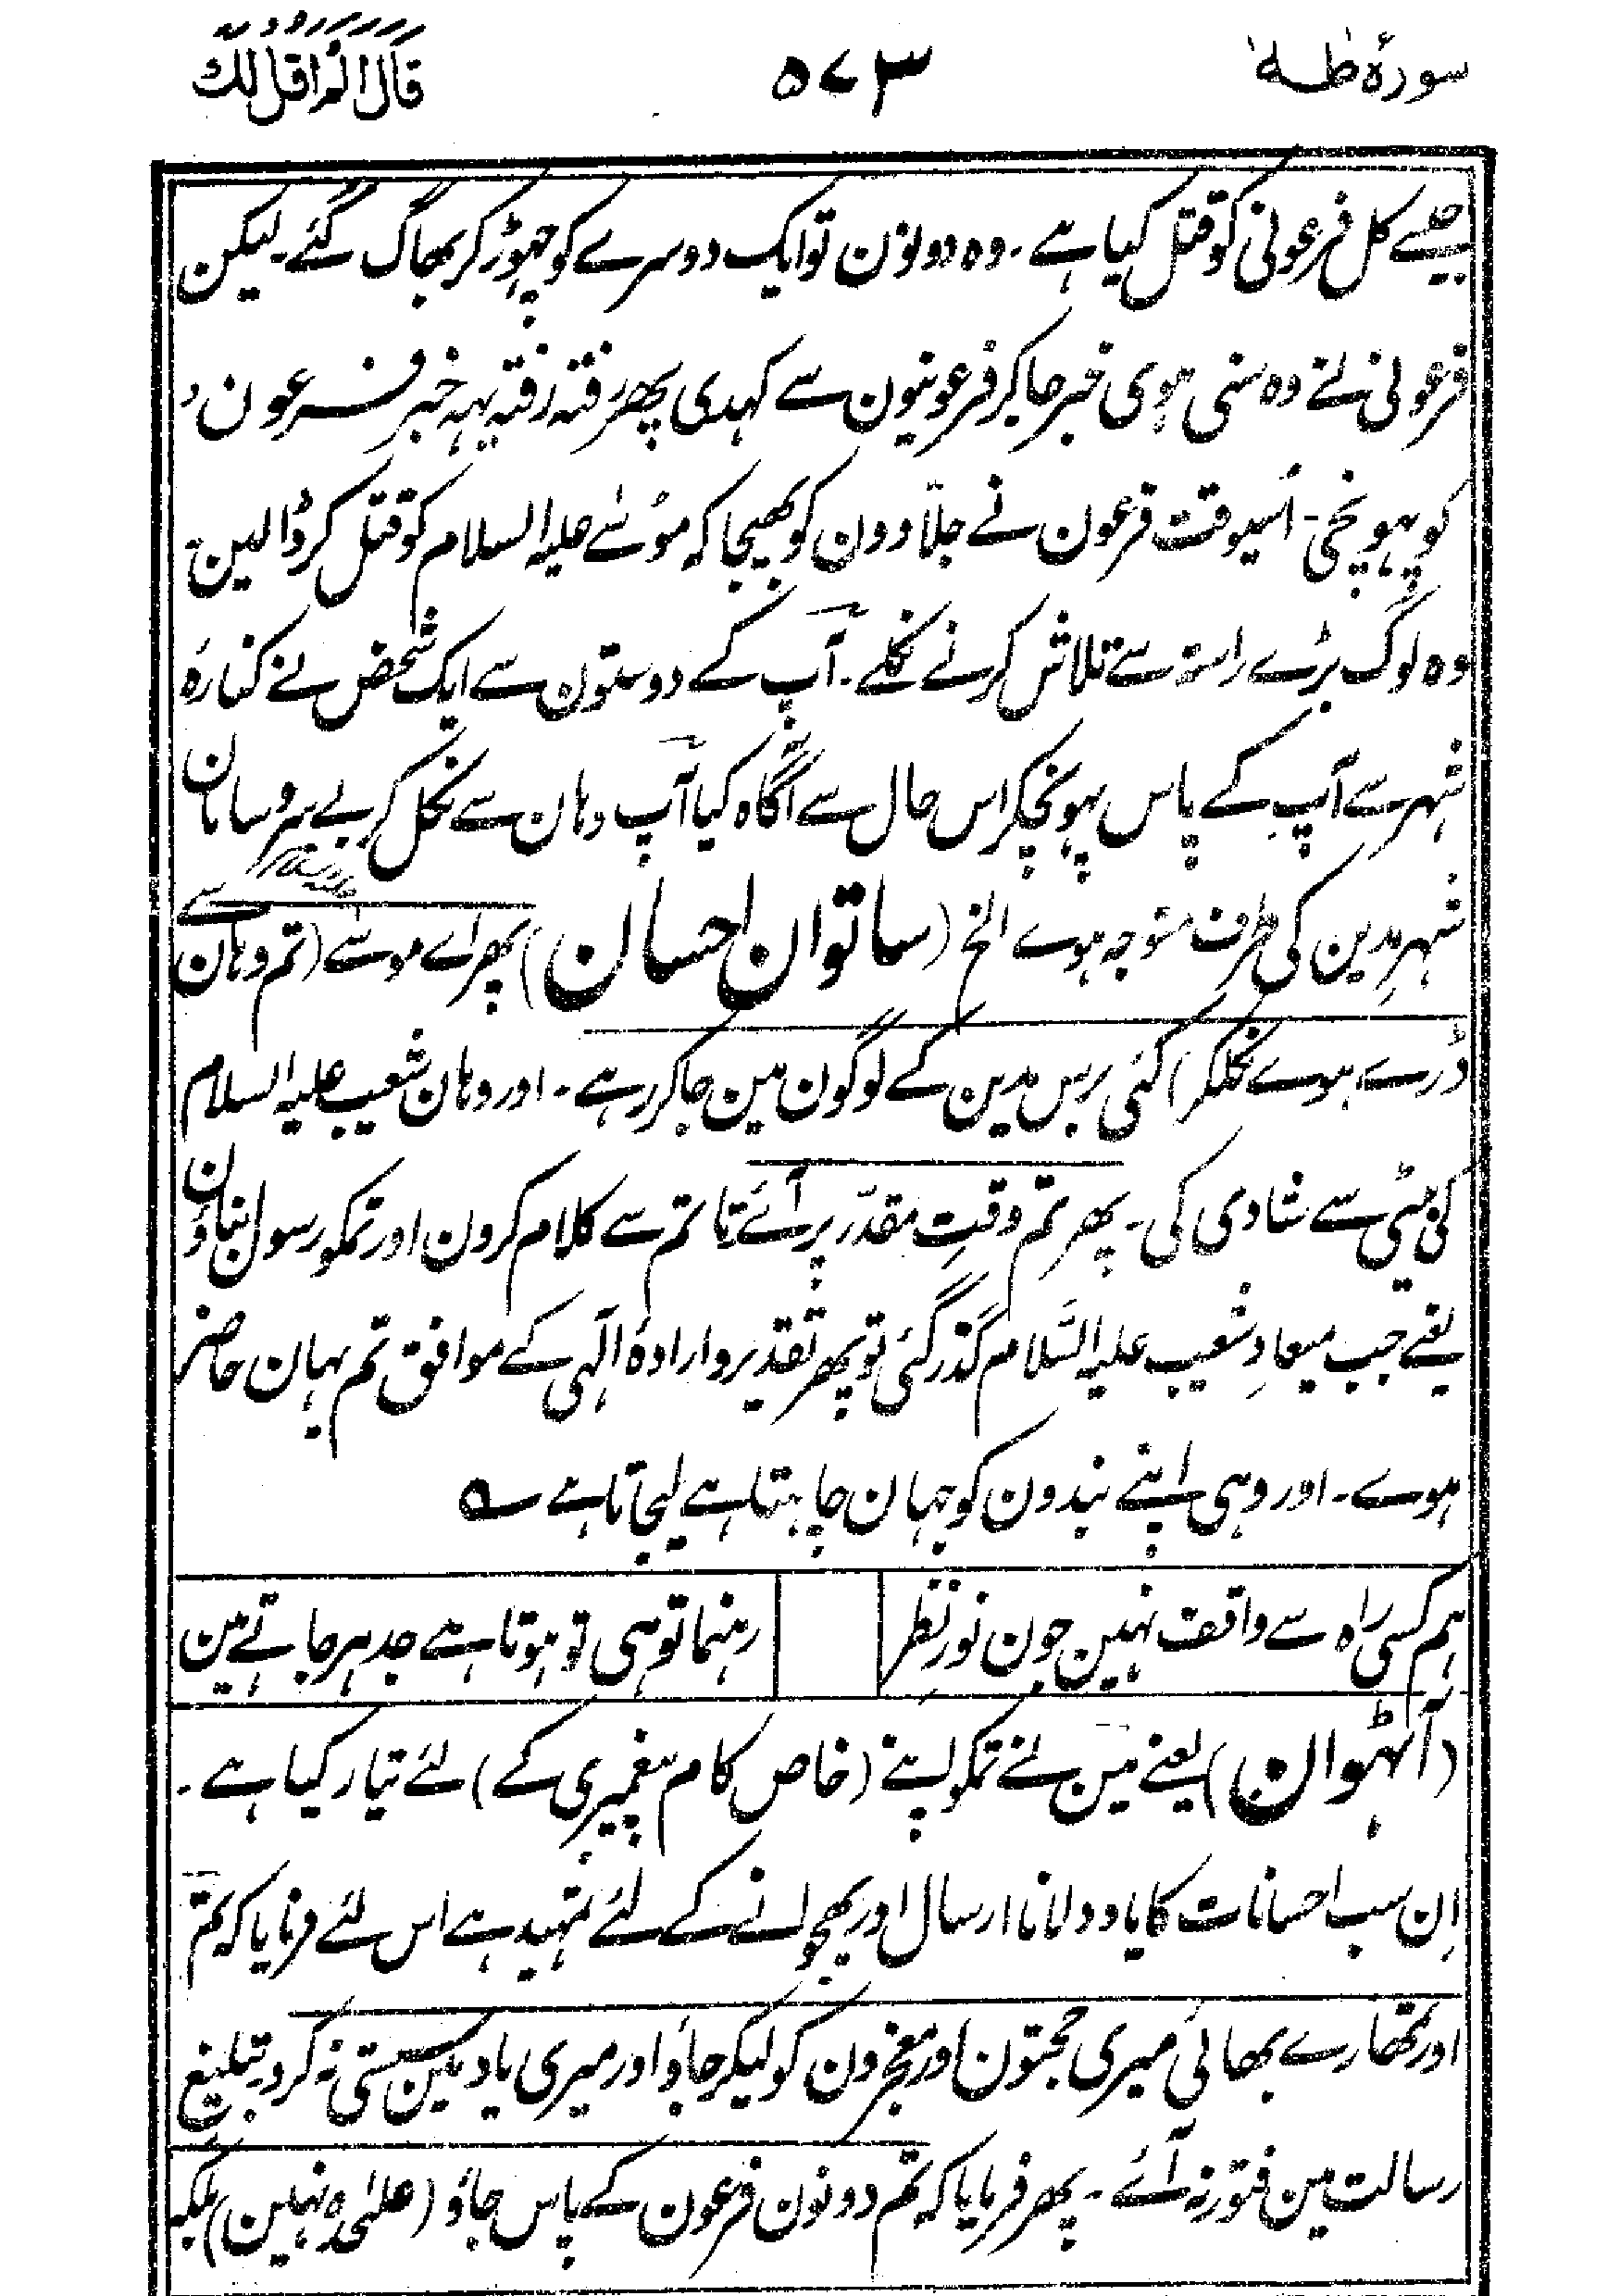 سورۂ طٰہٰ
۵۷۳
قَالَ اَلَمْ اَقُلْ لَّكَ
جسنے کل فرعونی کو قتل کیا ہے ۔ وہ دونون تو ایک دوسرے کو چھوڑ کر بھاگ گئے ۔ لیکن
فرعونی نے وہ سنی ہوی خبر جا کر فرعونیون سے کہدی پھر رفتہ رفتہ یہہ خبر فرعون
کو پہونچی ۔ اُسیوقت فرعون نے جلّادون کو بھیجا کہ موسٰے علیہ السلام کو قتل کر ڈالین
وہ لوگ بڑے راستہ سے تلاش کرنے نکلے ۔ آپ کے دوستون سے ایک شخص نے کنارۂ
شہر سے آپ کے پاس پہونچکر اس حال سے آگاہ کیا آپ وہان سے نکل کر بے سروسامان
شہرِ مدین کی طرف متوجہ ہوے الخ (ساتوان احسان) پھر اے موسٰے (تم وہان سے
ڈرے ہوے نکلکر) کئی برس مدین کے لوگون مین جا کر رہے ۔ اور وہان شعیب علیہ السلام
کی بیٹی سے شادی کی ۔ پھر تم وقتِ مقدّر پر آئے تا تم سے کلام کرون اور تمکو رسول بناؤن
یعنے جب میعادِ شعیب علیہ السَّلام گذر گئی تو پھر تقدیر و ارادۂ الٰہی کے موافق تم یہان حاضر
ہوے ۔ اور وہی اپنے بندون کو جہان چاہتا ہے لیجاتا ہے ؎
ہم کسی راہ سے واقف نہین جون نورِ نظر
رہنما تو ہی تو ہوتا ہے جدہر جاتے ہین
(آٹھوان) یعنے مین نے تمکو اپنے (خاص کام پیغمبری کے) لئے تیار کیا ہے ۔
اِن سب احسانات کا یاد دلانا ارسال اور بھجوانے کے لئے تمہید ہے اس لئے فرمایا کہ تم
اور تمھارے بھائی میری حجتون اور معجزون کو لیکر جاؤ اور میری یاد مین سستی نہ کرو تبلیغ
رسالت مین فتور نہ آئے ۔ پھر فرمایا کہ تم دونون فرعون کے پاس جاؤ (علٰحدہ نہین) بلکہ